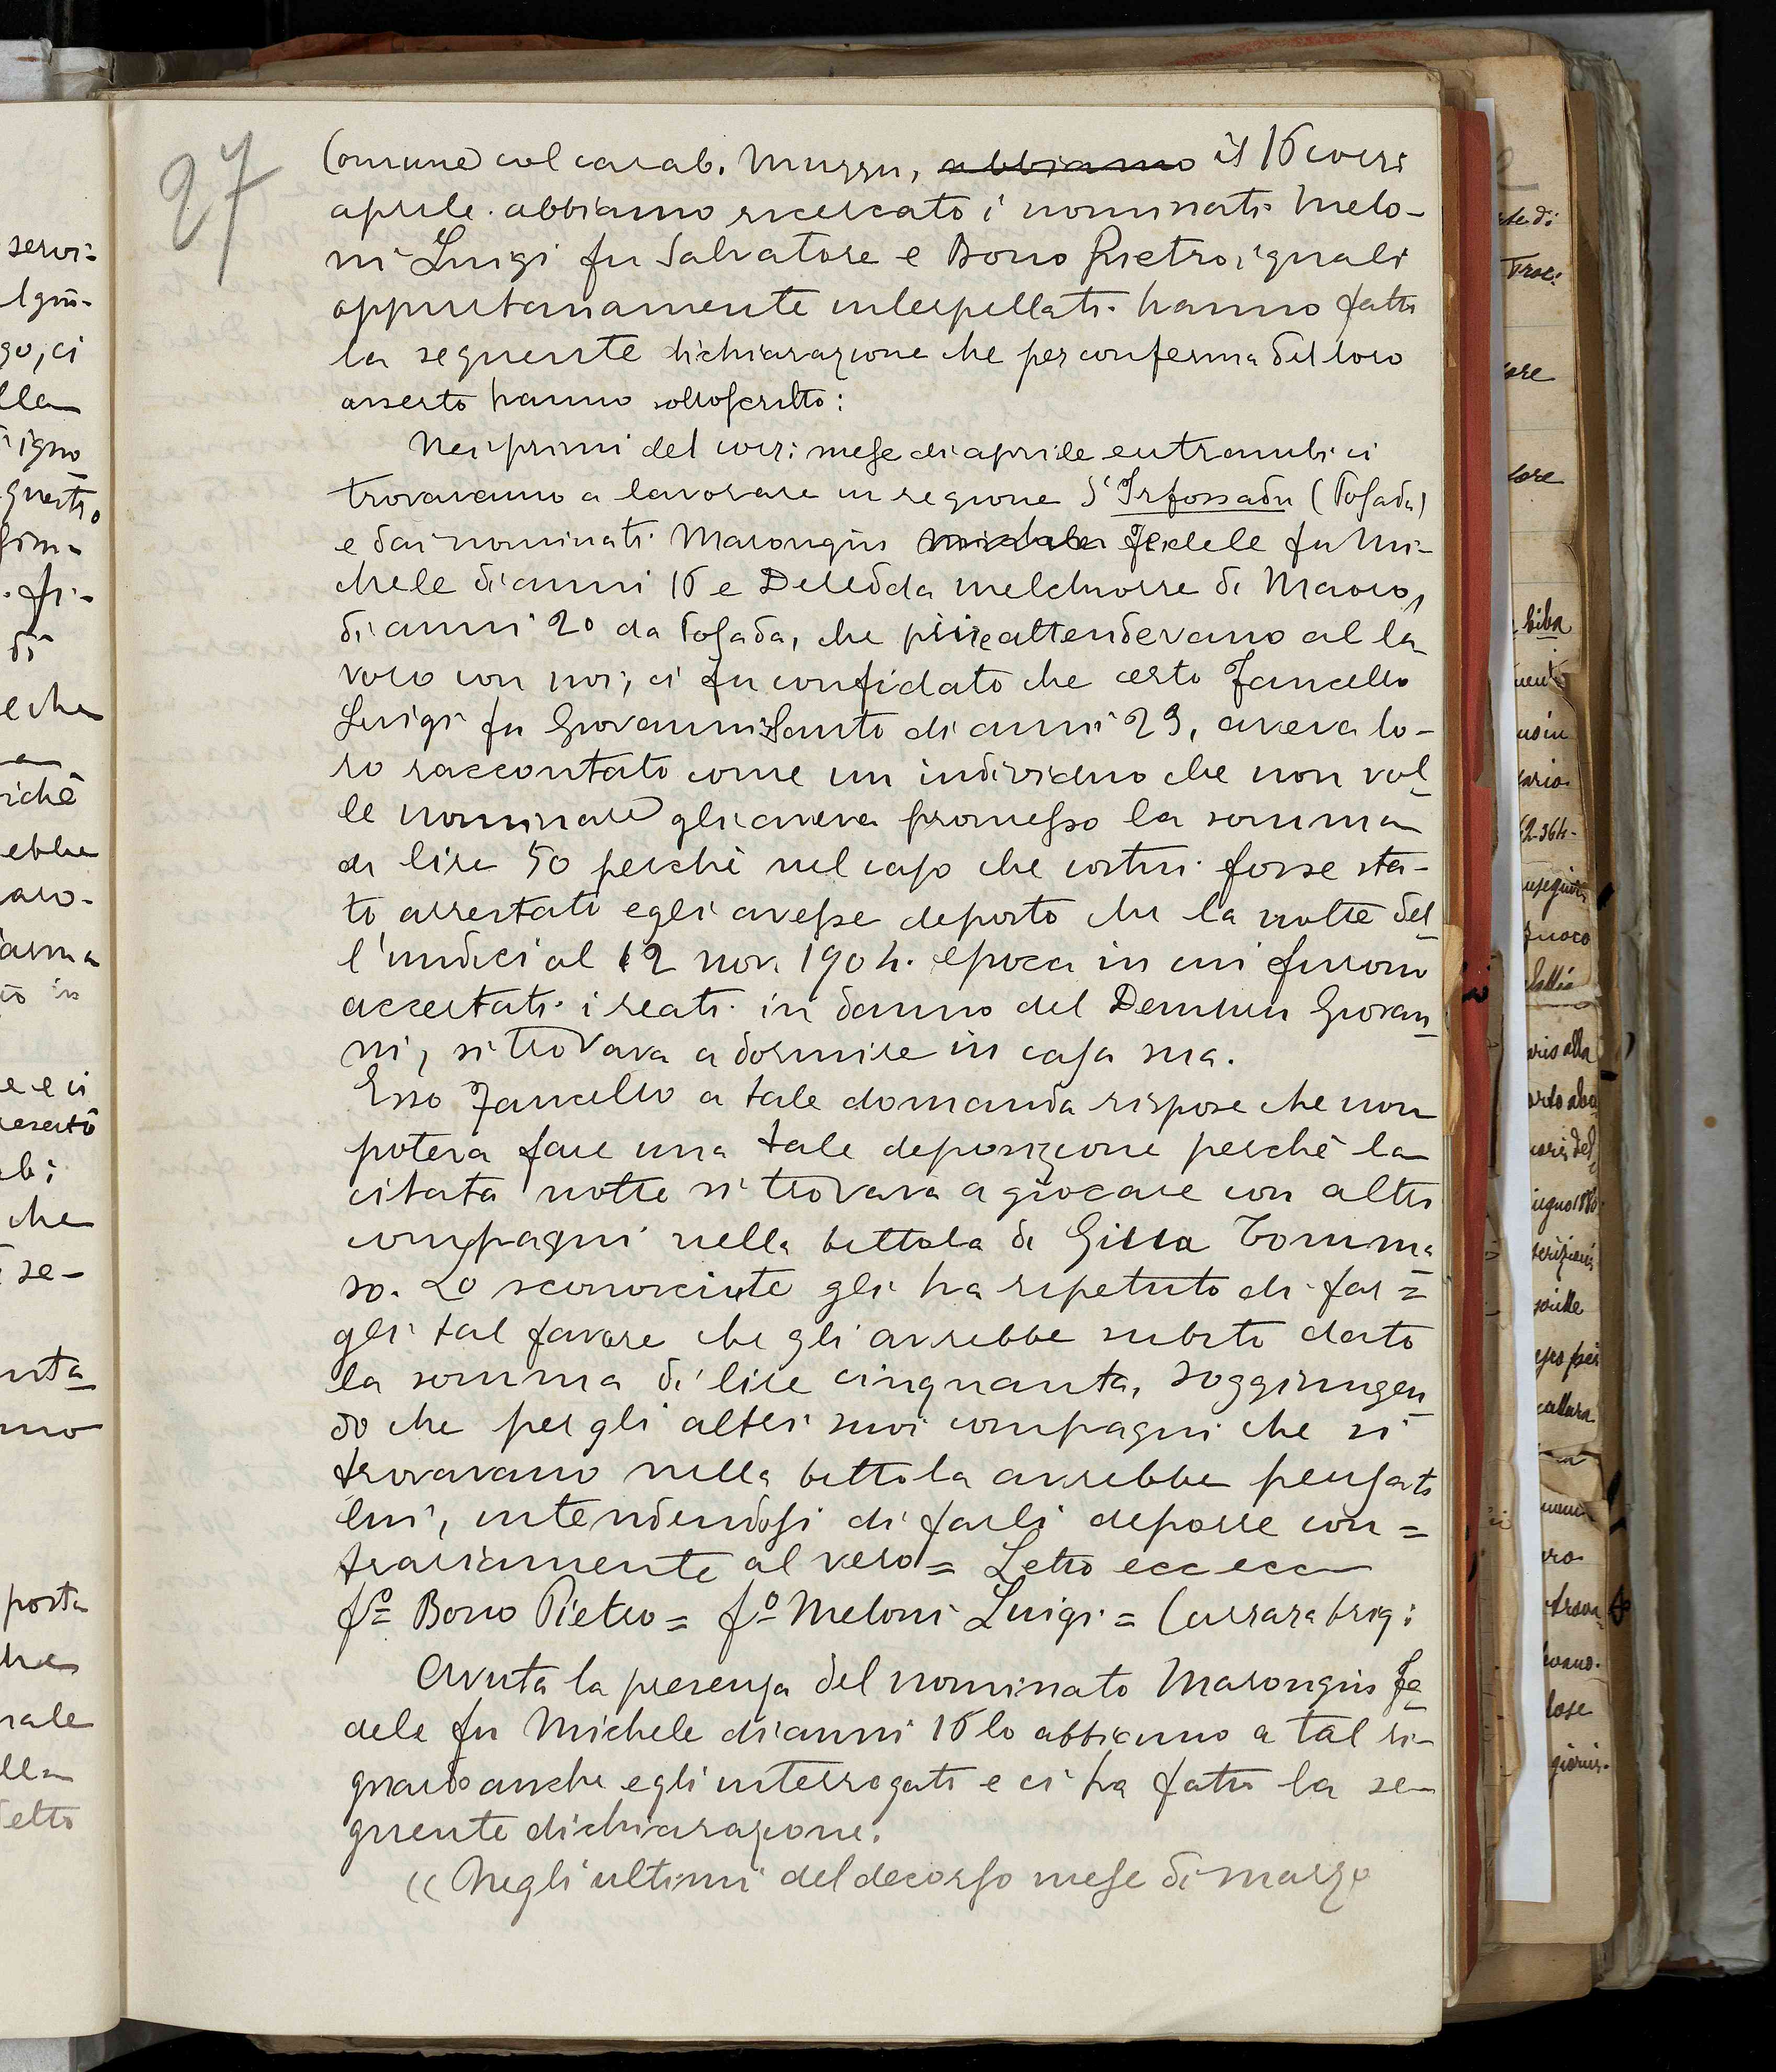 27
(omune) col carab. Muzzu, abbiamo il 16 corr:
aprile. abbiamo ricercato i nominati Melo-
ni Luigi fu Salvatore e Bono Pietro, i quali
opportunamente interpellati hanno fatto
la seguente dichiarazione che per conferma del loro
asserto hanno sottoscritto:
Nei primi del corr: mese di aprile entrambi ci
trovavamo a lavorare in regione S'Irfossadu (Posada)
e dai nominati Marongiu Fedele fu Mi-
chele di anni 16 e Deledda Melchiorre di Mauro,
di anni 20 da Posada, che pure attendevano al la
voro con noi, ci fu confidato che certo Zancello
Luigi fu Giovannisanto di anni 29, aveva lo-
ro raccontato come un individuo che non vol
le nominare gli aveva promesso la somma
di lire 50 perchè nel caso che costui fosse sta-
to arrestato egli avesse deposto che la notte del
l'undici al 12 nov. 1904. epoca in cui furono
accertati i reati in danno del Demuru Giovan
ni, si trovava a dormire in casa sua.
Esso Zancello a tale domanda rispose che non
poteva fare una tale deposizione perchè la
citata notte si trovava a giocare con altri
compagni nella bettola di Gilla Tomma
so. Lo sconosciuto gli ha ripetuto di far=
gli tal favore che gli avrebbe subito dato
la somma di lire cinquanta, soggiungen
do che per gli altri suoi compagni che si
trovavano nella bettola avrebbe pensato
lui, intendendosi di farli deporre con=
trariamente al vero= Letto ecc ecc
fo= Bono Pietro= fo Meloni Luigi= Currara brig:
Avuta la presenza del nominato Marongiu Fe
dele fu Michele di anni 16 lo abbiamo a tal ri-
guardo anche egli interrogato e ci ha fatto la se-
guente dichiarazione.
(( Negli ultimi del decorso mese di marzo